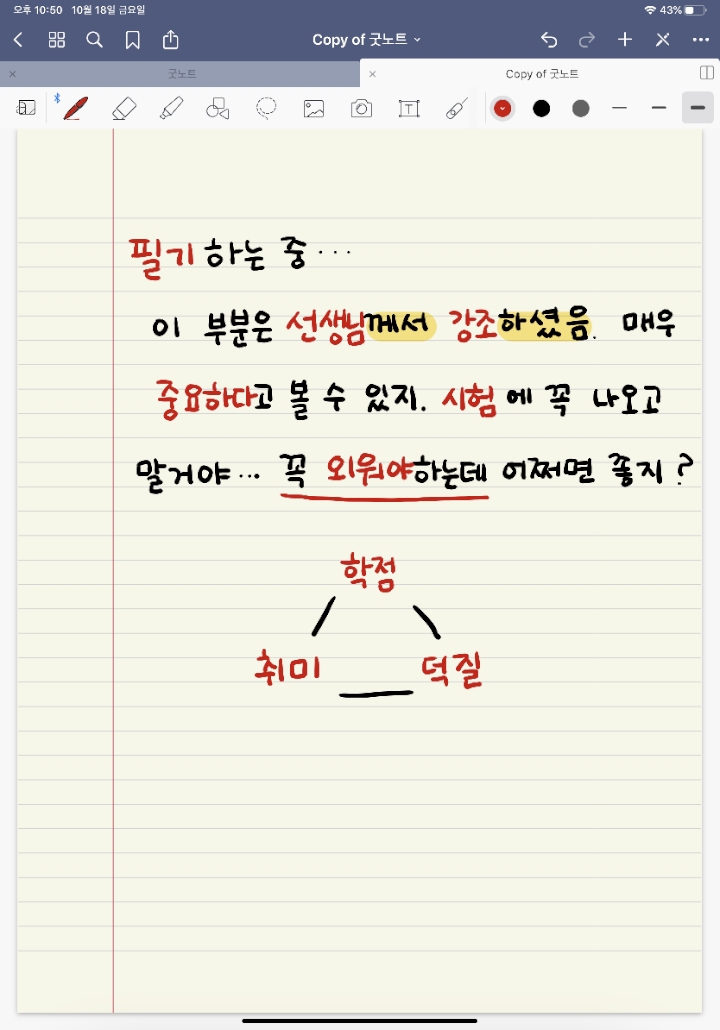 오후 10:50 10월 18일 금요일 43%
Copy of 굿노트
굿노트 Copy of 굿노트
필기 하는 중 ...
이 부분은 선생님께서 강조하셨음. 매우
중요하다고 볼 수 있지. 시험에 꼭 나오고
말거야... 꼭 외워야하는데 어쩌면 좋지?
학점
취미 덕질